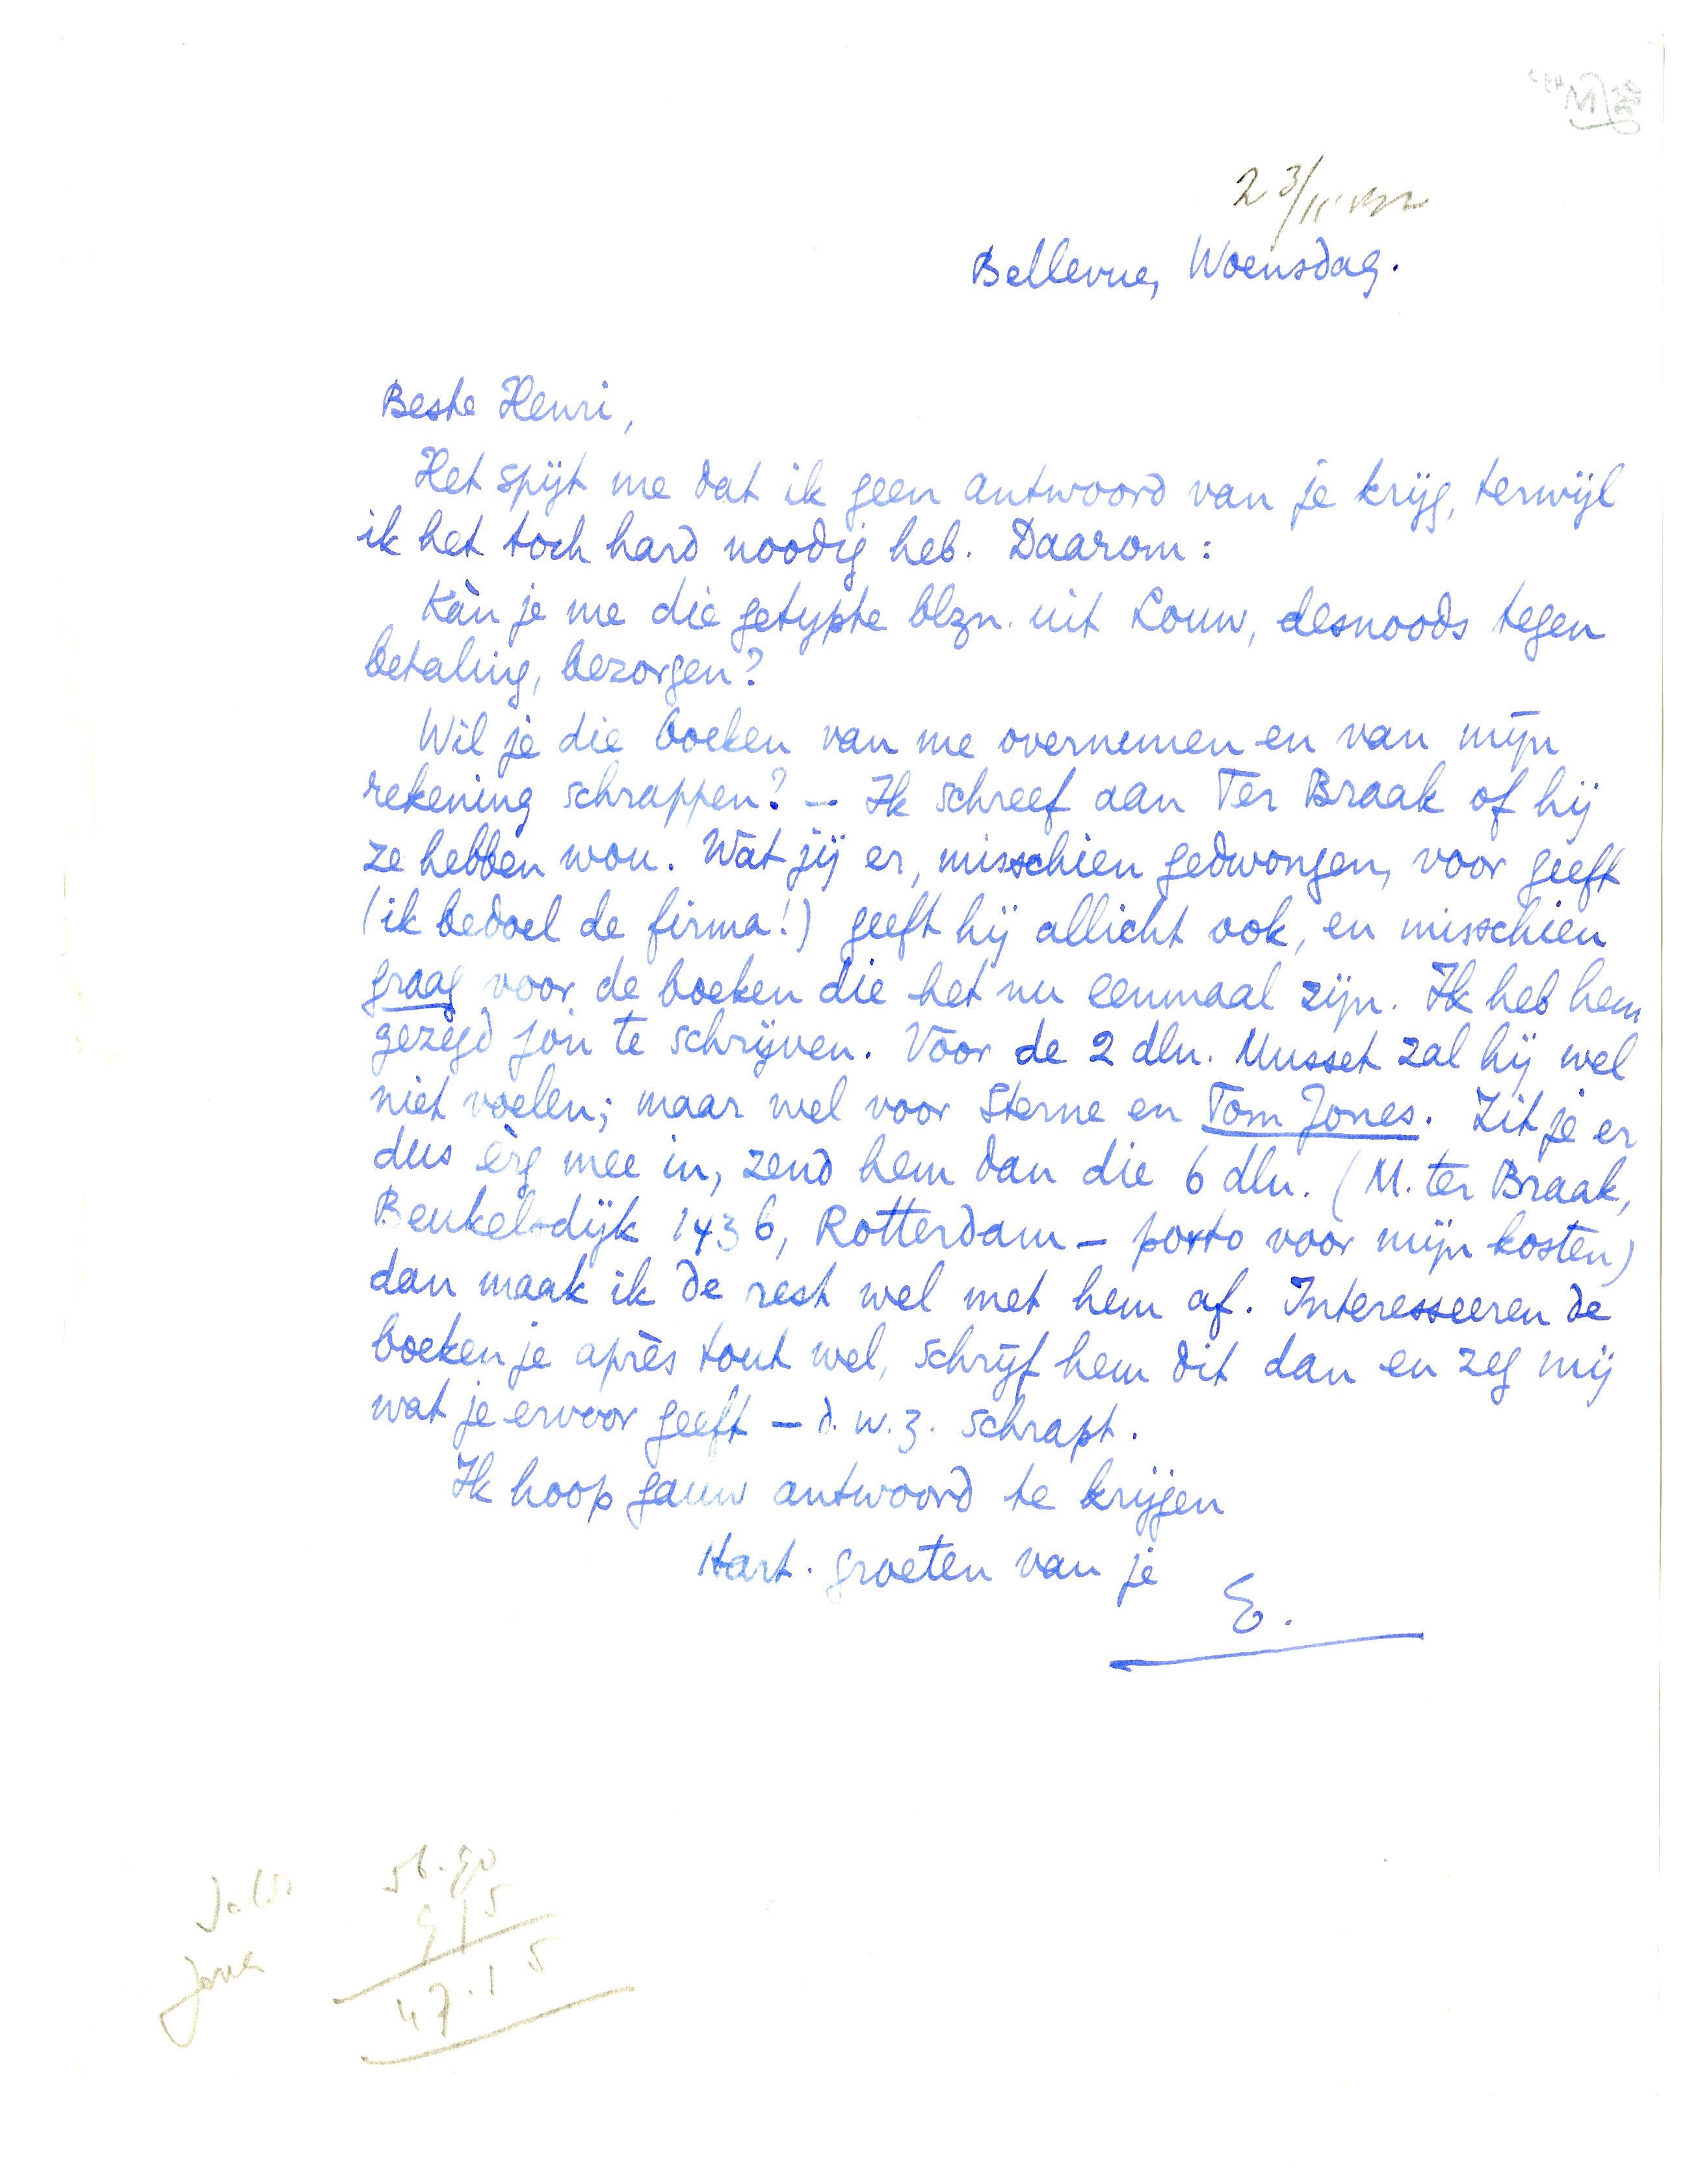 23/11
Bellevue, Woensdag.
Beste Henri,
Het spijt me dat ik geen antwoord van je krijg, terwijl
ik het toch hard noodig heb. Daarom:
Kàn je me die getypte blzn. uit Louw, desnoods tegen
betaling, bezorgen?
Wil je die boeken van me overnemen en van mijn
rekening schrappen? — Ik schreef aan Ter Braak of hij
ze hebben wou. Wat jij er, misschien gedwongen, voor geeft
(ik bedoel de firma!) geeft hij allicht ook, en misschien
graag voor de boeken die het nu eenmaal zijn. Ik heb hem
gezegd jou te schrijven. Voor de 2 dln. Musset zal hij wel
niet voelen; maar wel voor Sterne en Tom Jones. Zit je er
dus èrg mee in, zend hem dan die 6 dln. (M. ter Braak,
Beukelsdijk 143 b, Rotterdam — porto voor mijn kosten)
dan maak ik de rest wel met hem af. Interesseeren de
boeken je après tout wel, schrijf hem dit dan en zeg mij
wat je ervoor geeft — d.w.z. schrapt.
Ik hoop gauw antwoord te krijgen
Hart. groeten van je
E.
56.90
9 15
Jones
47.15